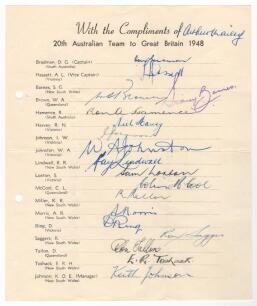 With the Compliments of Arthur Mailey
20th Australian Team to Great Britain 1948
Bradman, D. G. (Captain)
(South Australia)
Hassett, A. L. (Vice Captain)
(Victoria)
Barnes, S. G.
(New South Wales)
Brown, W. A.
(Queensland)
Hamence, R.
(South Australia)
Harvey, R. N.
(Victoria)
Johnson, I. W.
(Victoria)
Johnston, W. A.
(Victoria)
Lindwall, R. R.
(New South Wales)
Loxton, S.
(Victoria)
McCool, C. L.
(Queensland)
Miller, K. R.
(New South Wales)
Morris, A. R.
(New South Wales)
Ring, D.
(Victoria)
Saggers, R.
(New South Wales)
Tallon, D.
(Queensland)
Toshack, E. R. H.
(New South Wales)
Johnson, K. O. E. (Manager)
(New South Wales)
Don Bradman
Hassett
W A Brown
Sid Barnes
Ron A Hamence
Neil Harvey
W A Johnston
Ray Lindwall
Sam Loxton
Colin McCool
K Miller
A Morris
D Ring
Ron Saggers
Don Tallon
E. R. Toshack
Keith Johnson